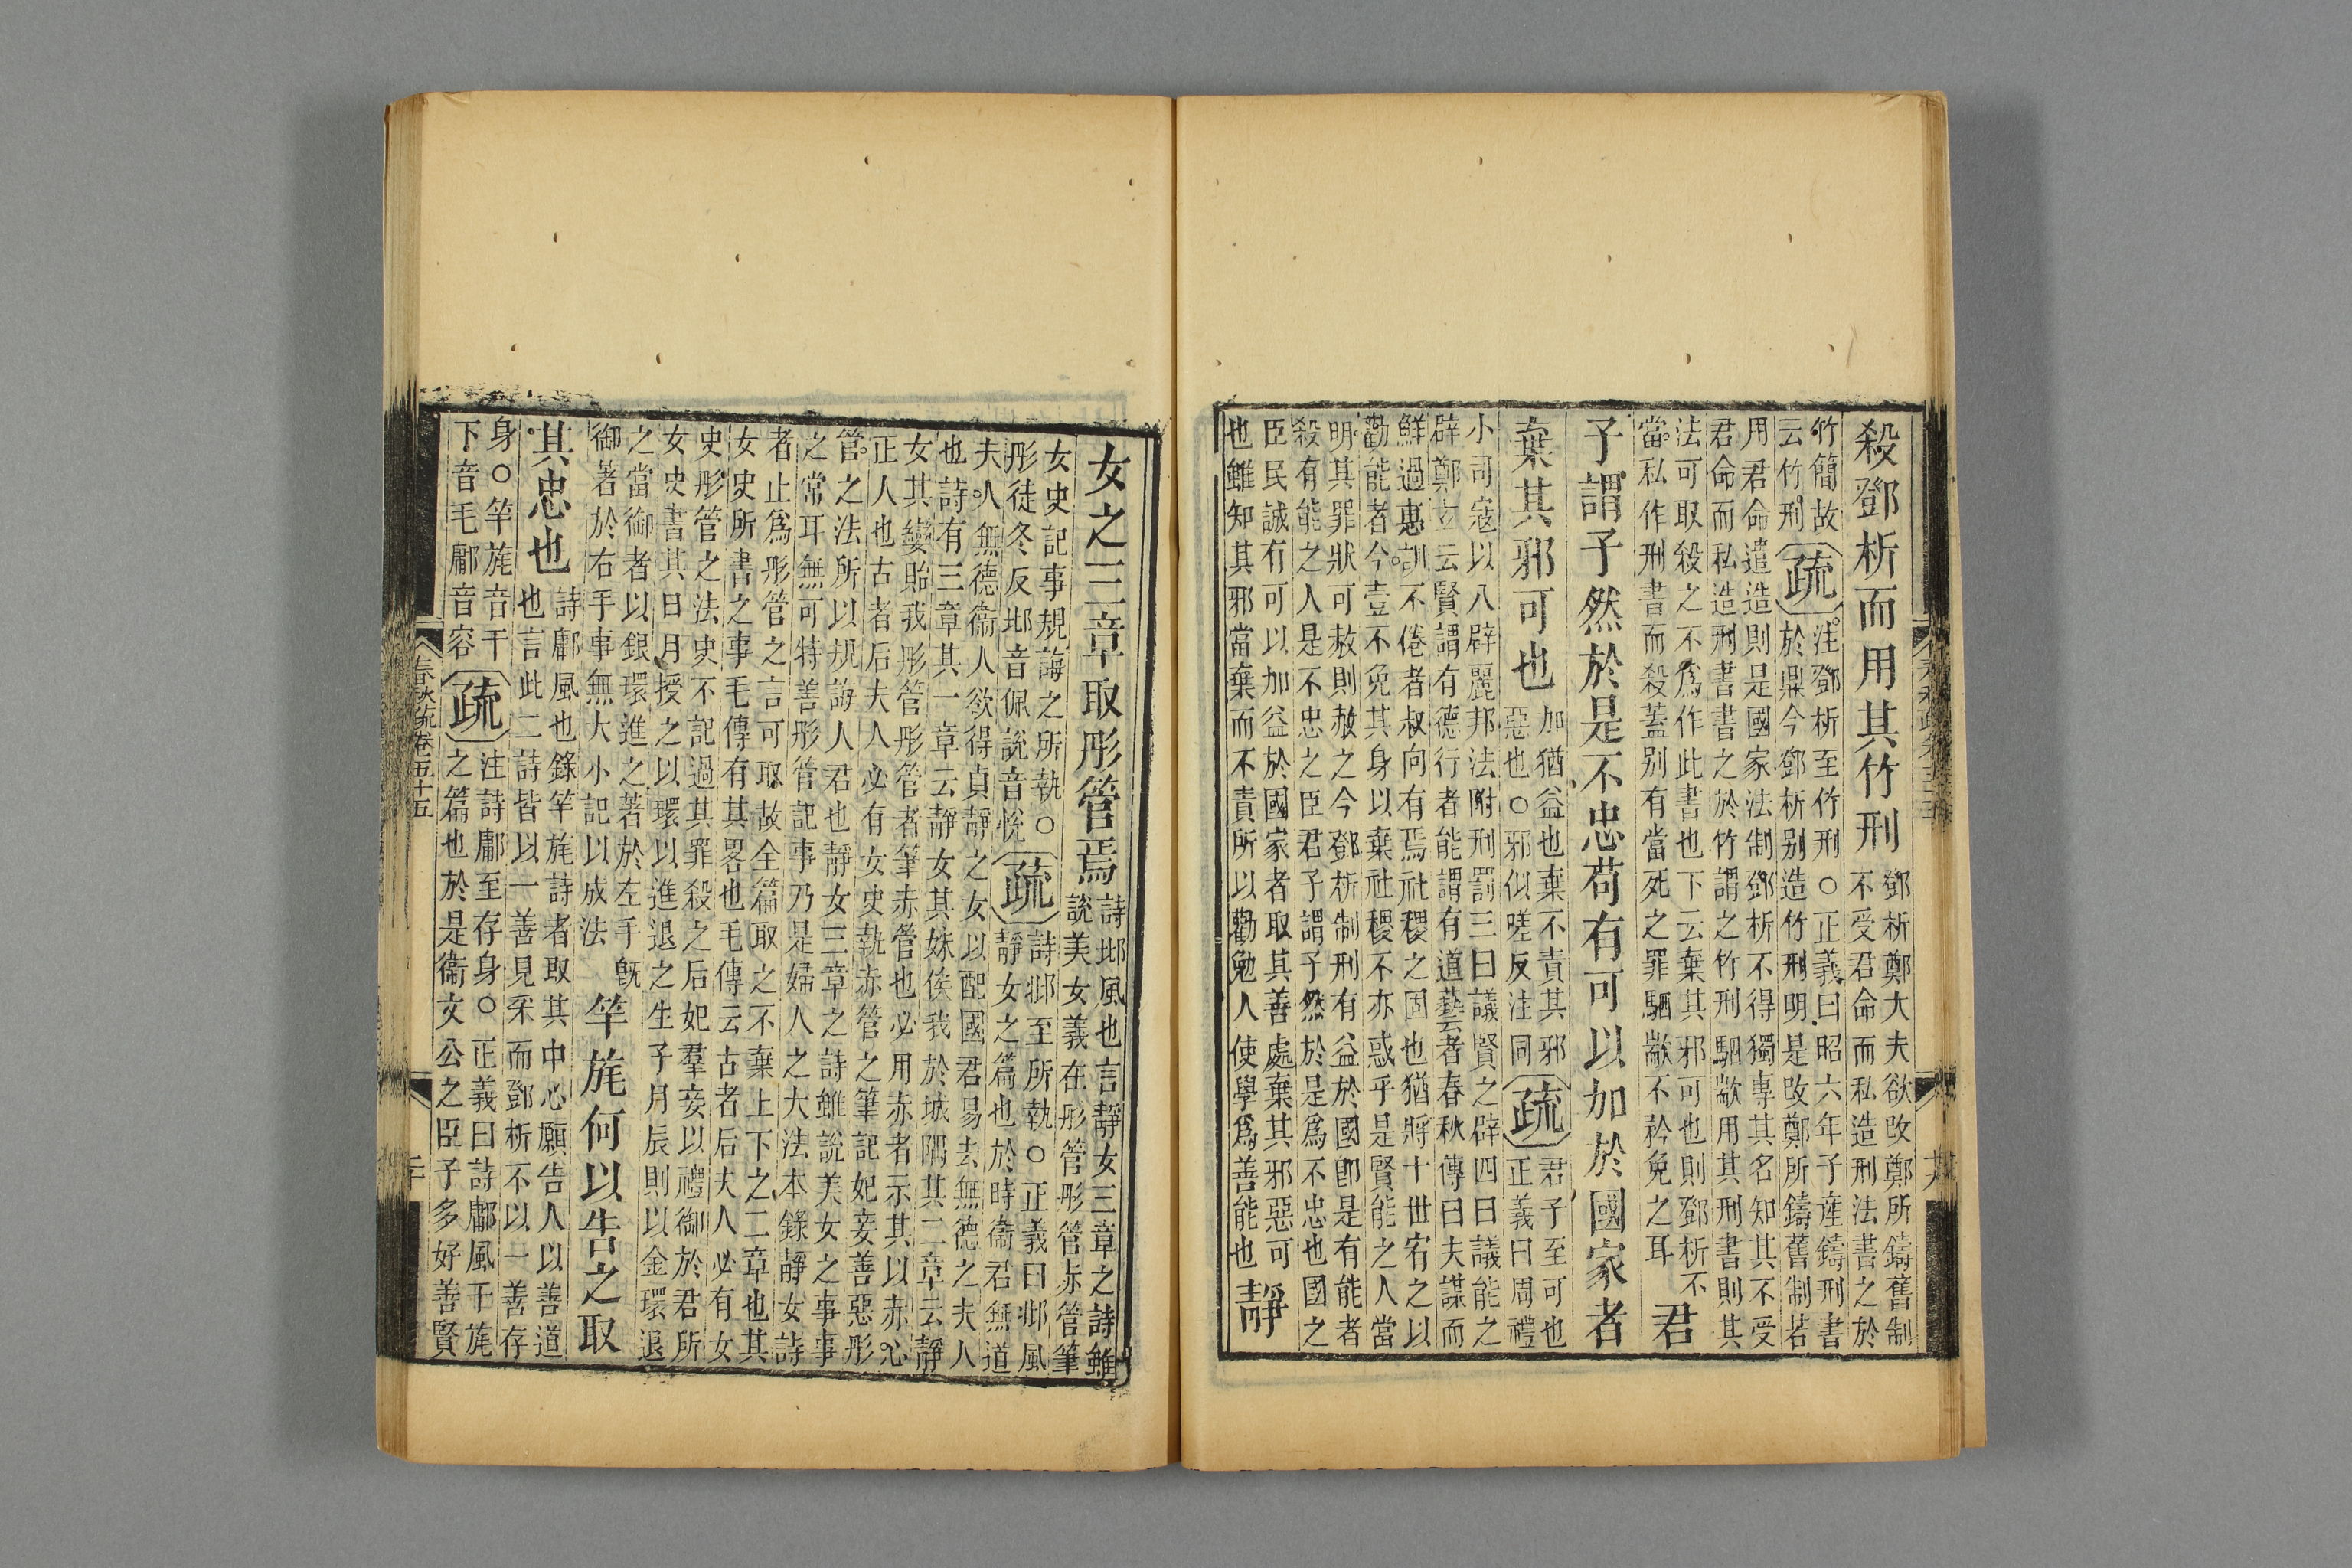 殺鄧析而用其竹刑
鄧析鄭大夫欲改鄭所鑄舊制
不受君命而私造刑法書之於
竹簡故
云竹刑
疏
注鄧析至竹刑○正義曰昭六年子産鑄刑書
於鼎今鄧析别造竹刑明是改鄭所鑄舊制若
用君命遣造則是國家法制鄧析不得獨專其名知其不受
君命而私造刑書書之於竹謂之竹刑駟歂用其刑書則其
法可取殺之不爲作此書也下云棄其邪可也則鄧析不
當私作刑書而殺蓋别有當死之罪駟歂不矜免之耳
君
子謂子然於是不忠苟有可以加於國家者
棄其邪可也
加猶益也棄不責其邪
惡也○邪似嗟反注同
疏
君子至可也
正義曰周禮
小司寇以八辟麗邦法附刑罰三曰議賢之辟四曰議能之
辟鄭玄云賢謂有德行者能謂有道藝者春秋傳曰夫謀而
鮮過惠訓不倦者叔向有焉社稷之固也猶將十世宥之以
勸能者今壹不免其身以棄社稷不亦惑乎是賢能之人當
明其罪狀可赦則赦之今鄧析制刑有益於國卽是有能者
殺有能之人是不忠之臣君子謂子然於是爲不忠也國之
臣民誠有可以加益於國家者取其善處棄其邪惡可
也雖知其邪當棄而不責所以勸勉人使學爲善能也
靜
女之三章取彤管焉
詩邶風也言靜女三章之詩雖
說美女義在彤管彤管赤管筆
女史記事規誨之所執○
彤徒冬反邶音佩說音悅
疏
詩邶至所執○正義曰邶風
靜女之篇也於時衞君無道
夫人無德衞人欲得貞靜之女以配國君易去無德之夫人
也詩有三章其一章云靜女其姝俟我於城隅其二章云靜
女其孌貽我彤管彤管者筆赤管也必用赤者示其以赤心
正人也古者后夫人必有女史執赤管之筆記妃妾善惡彤
管之法所以規誨人君也靜女三章之詩雖說美女之事事
之常耳無可特善彤管記事乃是婦人之大法本錄靜女詩
者止爲彤管之言可取故全篇取之不棄上下之二章也其
女史所書之事毛傳有其畧也毛傳云古者后夫人必有女
史彤管之法史不記過其罪殺之后妃羣妾以禮御於君所
女史書其日月授之以環以進退之生子月辰則以金環退
之當御者以銀環進之著於左手旣
御著於右手事無大小記以成法
竿旄何以告之取
其忠也
詩鄘風也錄竿旄詩者取其中心願告人以善道
也言此二詩皆以一善見采而鄧析不以一善存
身○竿旄音干
下音毛鄘音容
疏
注詩鄘至存身○正義曰詩鄘風干旄
之篇也於是衞文公之臣子多好善賢
春秋疏卷五十五
二十